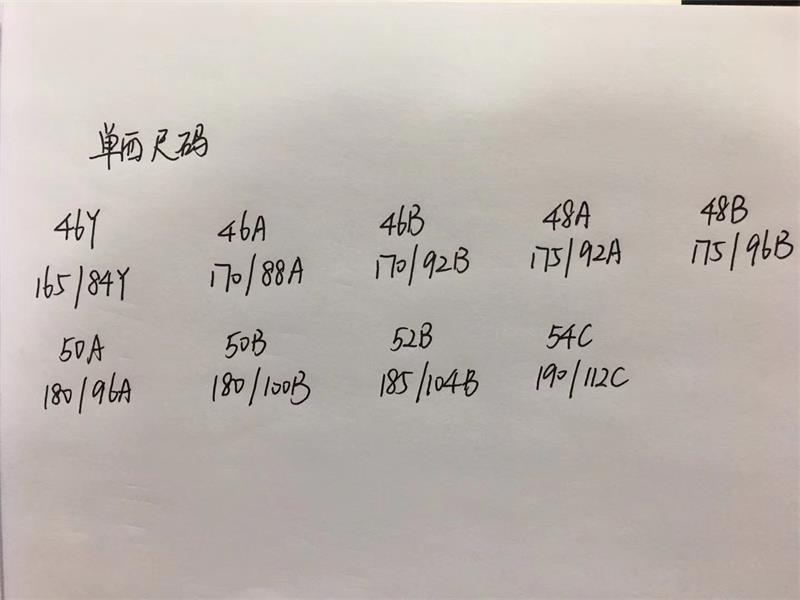 单西尺码
46Y 46A 46B 48A 48B
165/84Y 170/88A 170/92B 175/92A 175/96B
50A 50B 52B 54C
180/96A 180/100B 185/104B 190/112C